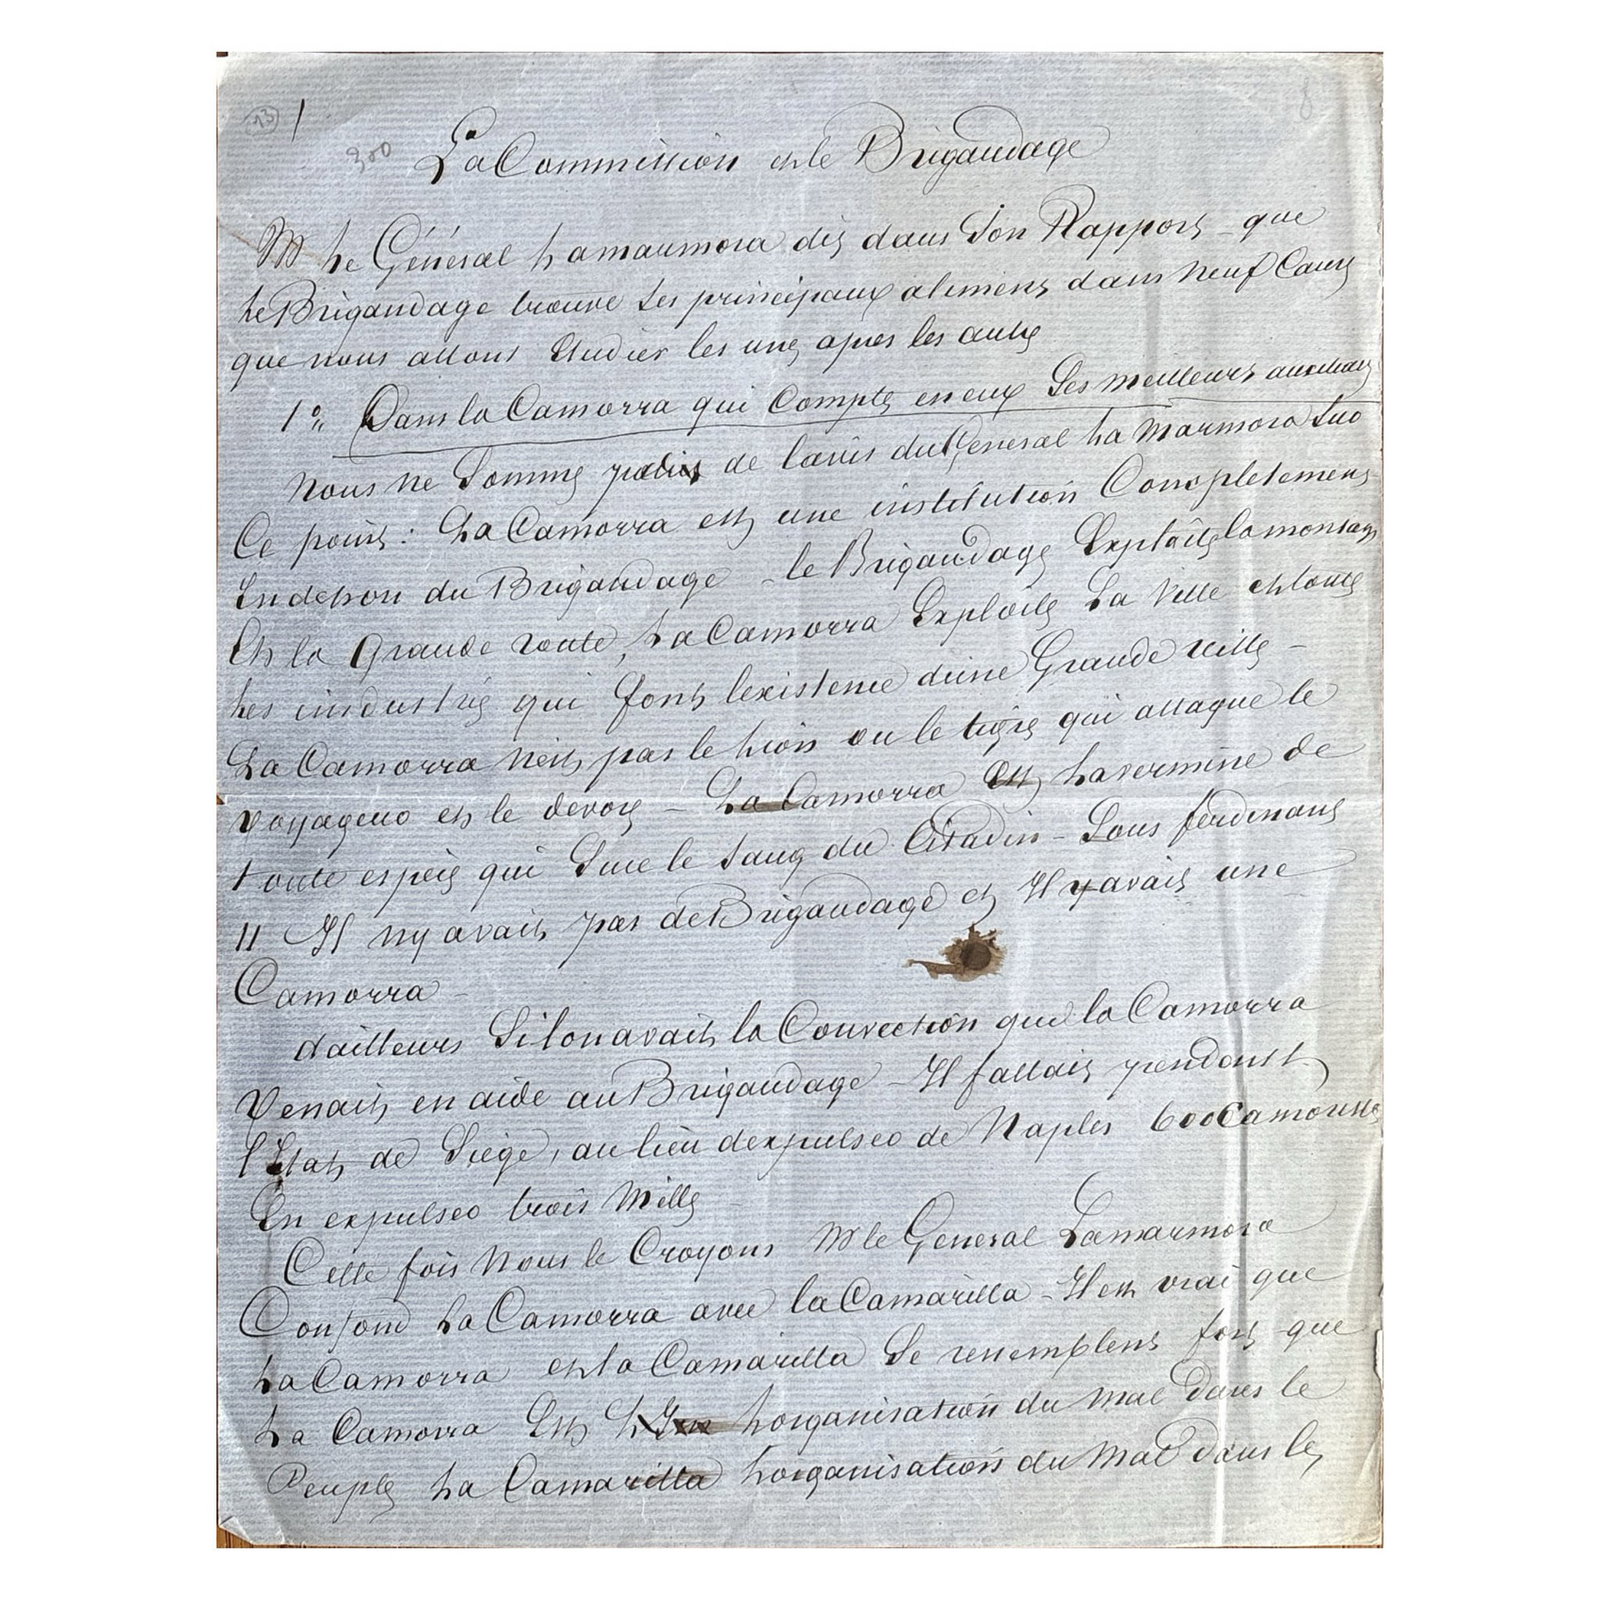 13 1 8
300
La Commission et le Brigandage
Mr Le Général Lamarmora dit dans Son Rapport – que
Le Brigandage trouve Ses principaux aliments dans neuf Causes
que nous allons Etudier les unes apres les autres
1° Dans la Camorra qui Compte en eux Ses meilleurs auxiliaires
Nous ne Sommes de lavis du General La Marmora Sur
Ce point : La Camorra est une institution Completement
En dehors du Brigandage – le Brigandage Exploite la montagne
Et la Grande route, La Camorra Exploite La Ville et toutes
Les industries qui font lexistence dune Grande ville –
La Camorra nest pas le Lion ou le tigre qui attaque le
voyageur et le devore – La Camorra est La vermine de
toute espece qui Suce le Sang du Citadin – Sous ferdinand
II Il ny avait pas de Brigandage et Il y avait une
Camorra –
dailleurs Si lon avait la Conviction que la Camorra
Venait en aide au Brigandage – Il fallait pendant
l'Etat de Siège, au lieu dexpulser de Naples 600 Camorristes
En expulser trois Mille –
Cette fois Nous le Croyons Mr le General Lamarmora
Confond La Camorra avec la Camarilla – Il est vrai que
La Camorra et la Camarilla Se ressemblent fort que
La Camorra Est Lorganisation du mal dans le
Peuple La Camarilla Lorganisation du Mal dans les